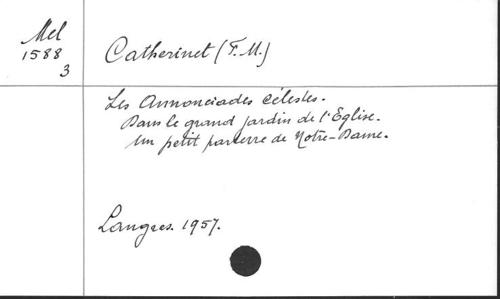 Mel
1588
3
Catherinet (F. M.)
Les Annonciades Célestes.
Dans le grand jardin de l'Eglise.
Un petit parterre de Notre-Dame.
Langres. 1957.